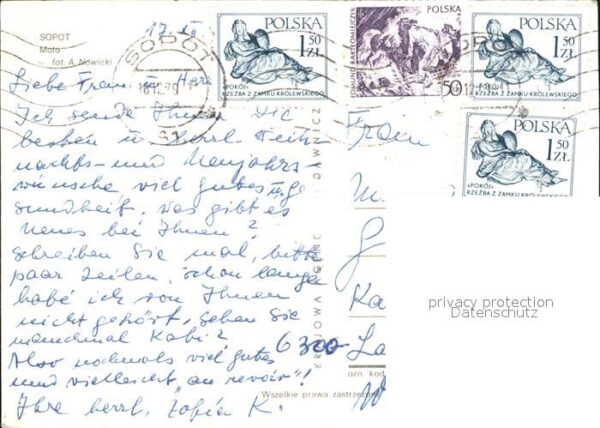 SOPOT
Molo
fot. A. Nowicki
17.XII
SOPOT
POLSKA
1 50 ZŁ
»POKÓJ«
RZEŹBA Z ZAMKU KRÓLEWSKIEGO
POLSKA
50
POLSKA
1 50 ZŁ
»POKÓJ«
RZEŹBA Z ZAMKU KRÓLEWSKIEGO
POLSKA
1 50 ZŁ
»POKÓJ«
RZEŹBA Z ZAMKU KRÓLEWSKIEGO
Liebe Frau u. Herr
Ich sende Ihnen die
besten u. herzl. Weih-
nachts- und Neujahrs-
wünsche viel gutes u. Ge
sundheit, was gibt es
neues bei Ihnen?
schreiben Sie mal, bitte
paar Zeilen, schon lange
habe ich von Ihnen
nicht gehört, sehen Sie
manchmal Kabi?
Also nochmals viel gutes
und vielleicht "au revoir"!
Ihre herzl. Zofia K.
KRAJOWA AGENC WYDAWNICZ
Frau
M
G
Ka
6300 La
W
ozn. kod
Wszelkie prawa zastrzeżone
privacy protection
Datenschutz